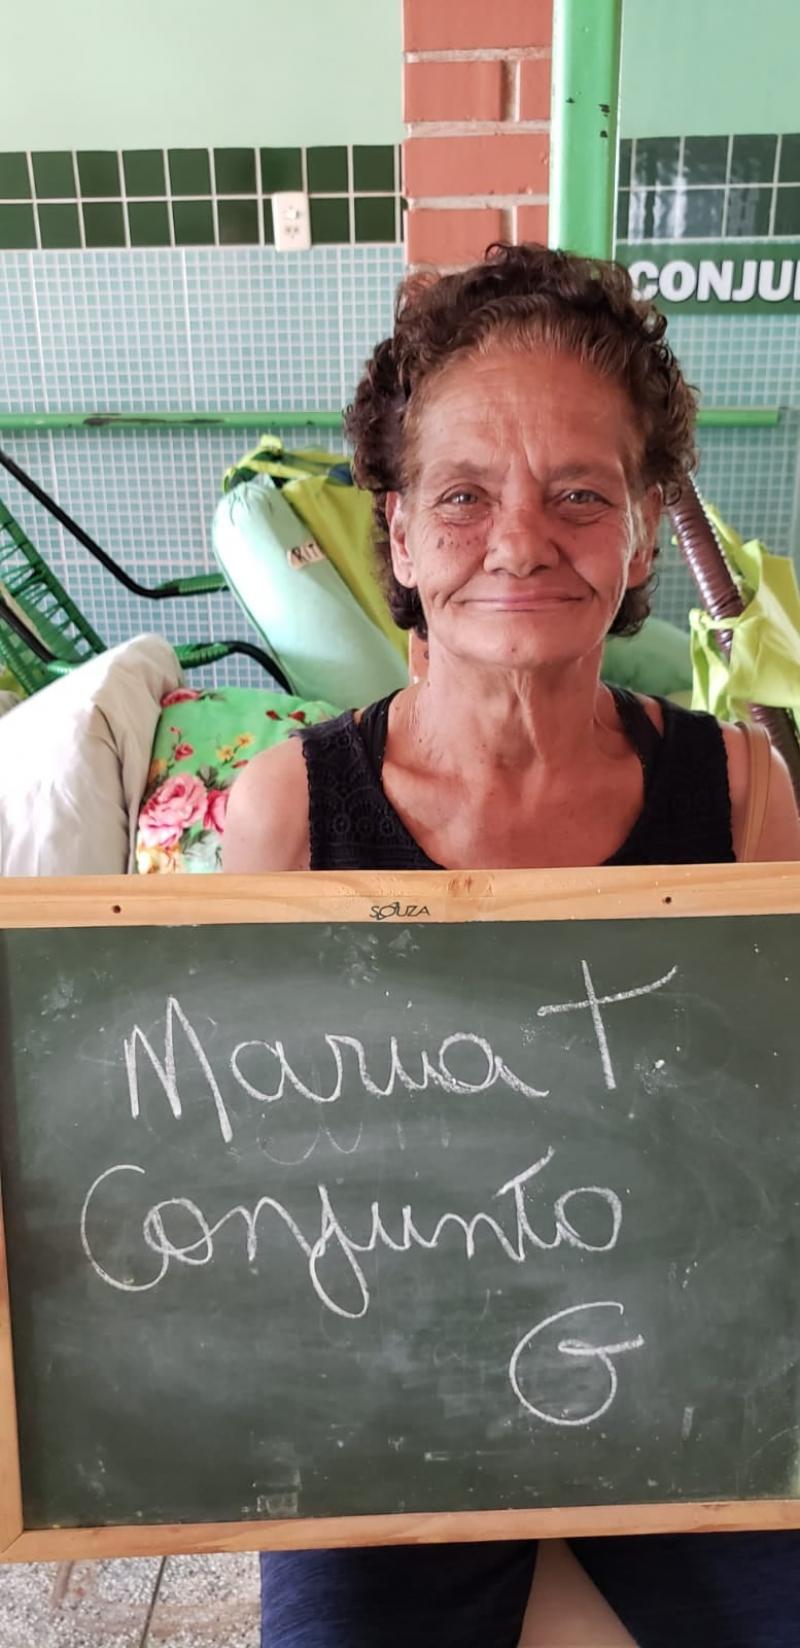 CONJU
RIT
SOUZA
Maria T.
Conjunto
G